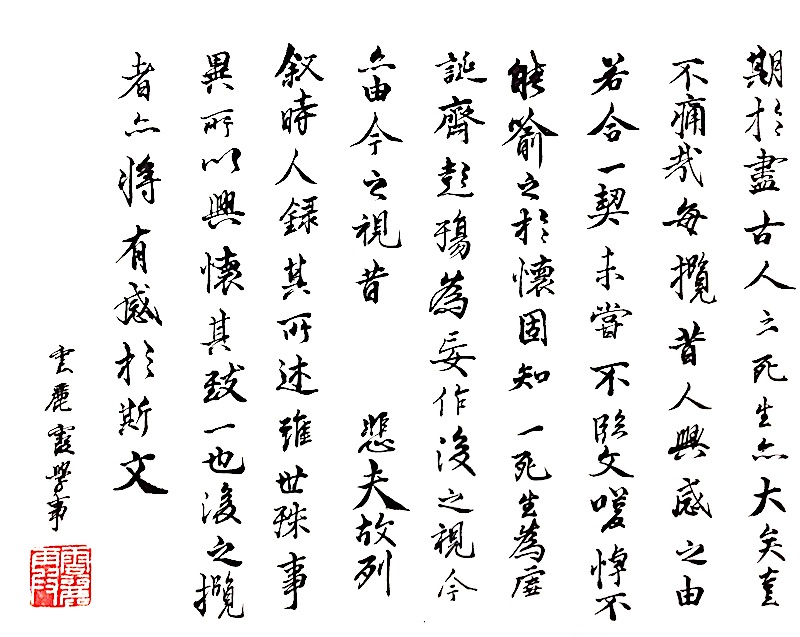 期於盡古人云死生亦大矣豈
不痛哉每攬昔人興感之由
若合一契未嘗不臨文嗟悼不
能喻之於懷固知一死生為虛
誕齊彭殤為妄作後之視今
亦由今之視昔 悲夫故列
叙時人錄其所述雖世殊事
異所以興懷其致一也後之攬
者亦將有感於斯文
雲麗霞學書